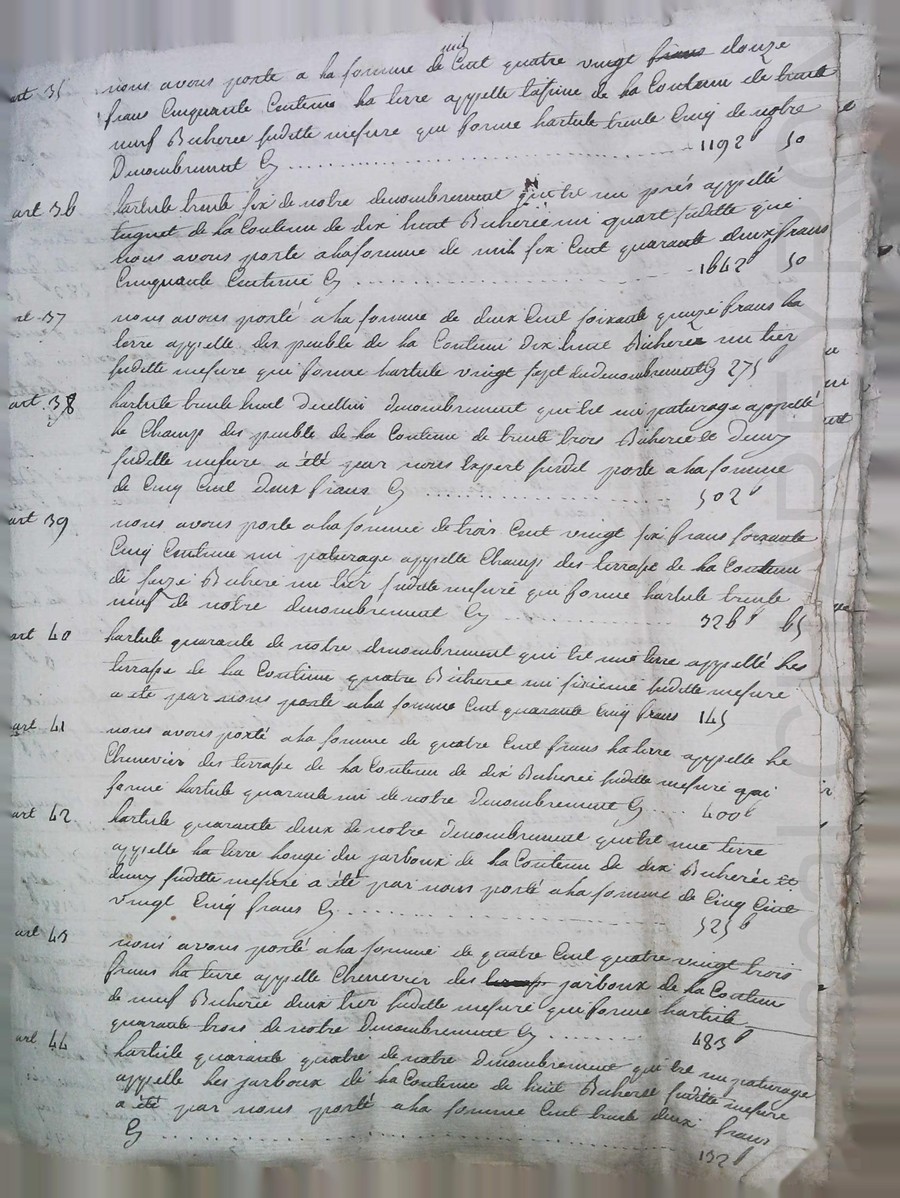 art 35 nous avons porté a ha somme de mil Cent quatre vingt frans douze
frans Cinquante Centime ha terre appelle de ha Contenu de trente
neuf Bicheree suditte mesure qui forme harticle trente Cinq de notre
Dénombrement ........ 1192f 50
art 36 harticle trente six de notre denombrement qui est un prés appellé
tuquet de ha Contenu de dix huit Bicherée un quart suditte que
nous avons porté a ha somme de mil six Cent quarante deux frans
Cinquante Centime ........ 1642f 50
art 37 nous avons porté a ha somme de deux Cent soixante quinze frans ha
terre appelle des peuble de ha Contenu dix huit Bicheree un tier
suditte mesure qui forme harticle vingt sept du denombrement 275f
art 38 harticle trente huit dudittin denombrement qui est un paturage appellé
he Champ des peuble de ha Contenu de trente trois Bicheree et demy
suditte mesure a été par nous Expert sudit porté a ha somme
de Cinq Cent deux frans ........ 502f
art 39 nous avons porté a ha somme de trois Cent vingt six frans soixante
Cinq Centime un paturage appelle Champ des terrasse de ha Contenu
de seize Bicheré un tier suditte mesuré qui forme harticle trente
neuf de notre denombrement ........ 326f 65
art 40 harticle quarante de notre denombrement qui est une terre appellé hes
terrasse de ha Contenu quatre Bicheree un sixieme suditte mesure
a été par nous porté a ha somme Cent quarante Cinq frans 145
art 41 nous avons porté a ha somme de quatre Cent frans ha terre appelle he
Chenevier des terrasse de ha Contenu de dix Bicherée suditte mesure qui
forme harticle quarante un de notre Denombrement ... 400f
art 42 harticle quarante deux de notre Denombrement qui est une terre
appelle ha terre hongé du jarboux de ha Contenu de dix Bicherée et
demy suditte mesuré a été par nous porté a ha somme de Cinq Cent
vingt Cinq frans ........ 525f
art 43 nous avons porté a ha somme de quatre Cent quatre vingt trois
frans ha terre appelle Chenevier des terrasse jarboux de ha Contenu
de neuf Bicheree deux tier suditte mesuré qui forme harticle
quarante trois de notre Denombrement ........ 483f
art 44 harticle quarante quatre de notre Denombrement qui est un paturage
appelle hes jarboux de ha Contenu de huit Bicheree suditte mesure
a été par nous porté a ha somme Cent trente deux frans
........ 132f